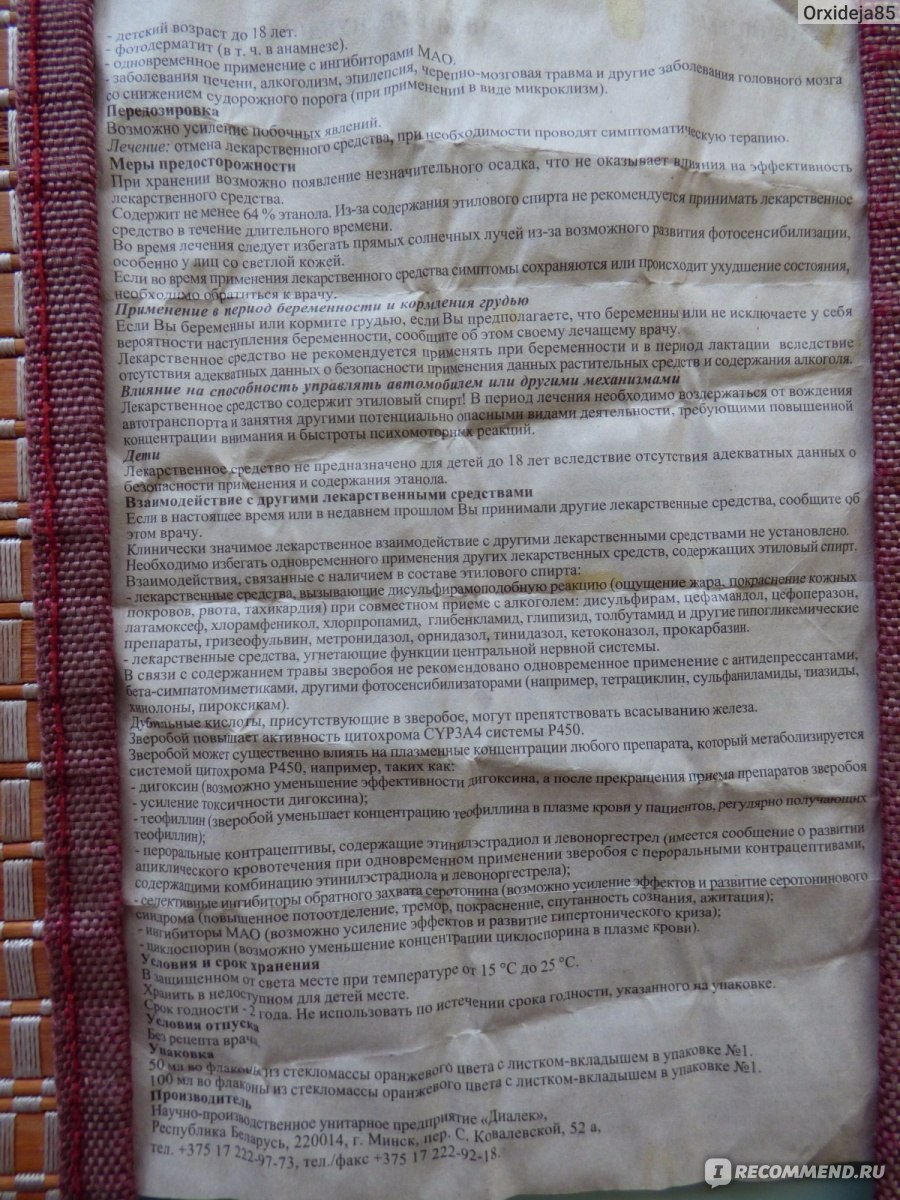 Orxideja85
- детский возраст до 18 лет.
- фотодерматит (в т. ч. в анамнезе).
- одновременное применение с ингибиторами МАО.
- заболевания печени, алкоголизм, эпилепсия, черепно-мозговая травма и другие заболевания головного мозга
со снижением судорожного порога (при применении в виде микроклизм).
Передозировка
Возможно усиление побочных явлений.
Лечение: отмена лекарственного средства, при необходимости проводят симптоматическую терапию.
Меры предосторожности
При хранении возможно появление незначительного осадка, что не оказывает влияния на эффективность
лекарственного средства.
Содержит не менее 64 % этанола. Из-за содержания этилового спирта не рекомендуется принимать лекарственное
средство в течение длительного времени.
Во время лечения следует избегать прямых солнечных лучей из-за возможного развития фотосенсибилизации,
особенно у лиц со светлой кожей.
Если во время применения лекарственного средства симптомы сохраняются или происходит ухудшение состояния,
необходимо обратиться к врачу.
Применение в период беременности и кормления грудью
Если Вы беременны или кормите грудью, если Вы предполагаете, что беременны или не исключаете у себя
вероятности наступления беременности, сообщите об этом своему лечащему врачу.
Лекарственное средство не рекомендуется применять при беременности и в период лактации вследствие
отсутствия адекватных данных о безопасности применения данных растительных средств и содержания алкоголя.
Влияние на способность управлять автомобилем или другими механизмами
Лекарственное средство содержит этиловый спирт! В период лечения необходимо воздержаться от вождения
автотранспорта и занятия другими потенциально опасными видами деятельности, требующими повышенной
концентрации внимания и быстроты психомоторных реакций.
Дети
Лекарственное средство не предназначено для детей до 18 лет вследствие отсутствия адекватных данных о
безопасности применения и содержания этанола.
Взаимодействие с другими лекарственными средствами
Если в настоящее время или в недавнем прошлом Вы принимали другие лекарственные средства, сообщите об
этом врачу.
Клинически значимое лекарственное взаимодействие с другими лекарственными средствами не установлено.
Необходимо избегать одновременного применения других лекарственных средств, содержащих этиловый спирт.
Взаимодействия, связанные с наличием в составе этилового спирта:
- лекарственные средства, вызывающие дисульфирамоподобную реакцию (ощущение жара, покраснение кожных
покровов, рвота, тахикардия) при совместном приеме с алкоголем: дисульфирам, цефамандол, цефоперазон,
латамоксеф, хлорамфеникол, хлорпропамид, глибенкламид, глипизид, толбутамид и другие гипогликемические
препараты, гризеофульвин, метронидазол, орнидазол, тинидазол, кетоконазол, прокарбазин.
- лекарственные средства, угнетающие функции центральной нервной системы.
В связи с содержанием травы зверобоя не рекомендовано одновременное применение с антидепрессантами,
бета-симпатомиметиками, другими фотосенсибилизаторами (например, тетрациклин, сульфаниламиды, тиазиды,
хинолоны, пироксикам).
Дубильные кислоты, присутствующие в зверобое, могут препятствовать всасыванию железа.
Зверобой повышает активность цитохрома CYP3A4 системы Р450.
Зверобой может существенно влиять на плазменные концентрации любого препарата, который метаболизируется
системой цитохрома Р450, например, таких как:
- дигоксин (возможно уменьшение эффективности дигоксина, а после прекращения приема препаратов зверобоя
- усиление токсичности дигоксина);
- теофиллин (зверобой уменьшает концентрацию теофиллина в плазме крови у пациентов, регулярно получающих
теофиллин);
- пероральные контрацептивы, содержащие этинилэстрадиол и левоноргестрел (имеется сообщение о развитии
ациклического кровотечения при одновременном применении зверобоя с пероральными контрацептивами,
содержащими комбинацию этинилэстрадиола и левоноргестрела);
- селективные ингибиторы обратного захвата серотонина (возможно усиление эффектов и развитие серотонинового
синдрома (повышенное потоотделение, тремор, покраснение, спутанность сознания, ажитация);
- ингибиторы МАО (возможно усиление эффектов и развитие гипертонического криза);
- циклоспорин (возможно уменьшение концентрации циклоспорина в плазме крови).
Условия и срок хранения
В защищенном от света месте при температуре от 15 °С до 25 °С.
Хранить в недоступном для детей месте.
Срок годности - 2 года. Не использовать по истечении срока годности, указанного на упаковке.
Условия отпуска
Без рецепта врача
Упаковка
50 мл во флаконы из стекломассы оранжевого цвета с листком-вкладышем в упаковке №1.
100 мл во флаконы из стекломассы оранжевого цвета с листком-вкладышем в упаковке №1.
Производитель
Научно-производственное унитарное предприятие «Диалек»,
Республика Беларусь, 220014, г. Минск, пер. С. Ковалевской, 52 а,
тел. +375 17 222-97-73, тел./факс +375 17 222-92-18.
IRECOMMEND.RU